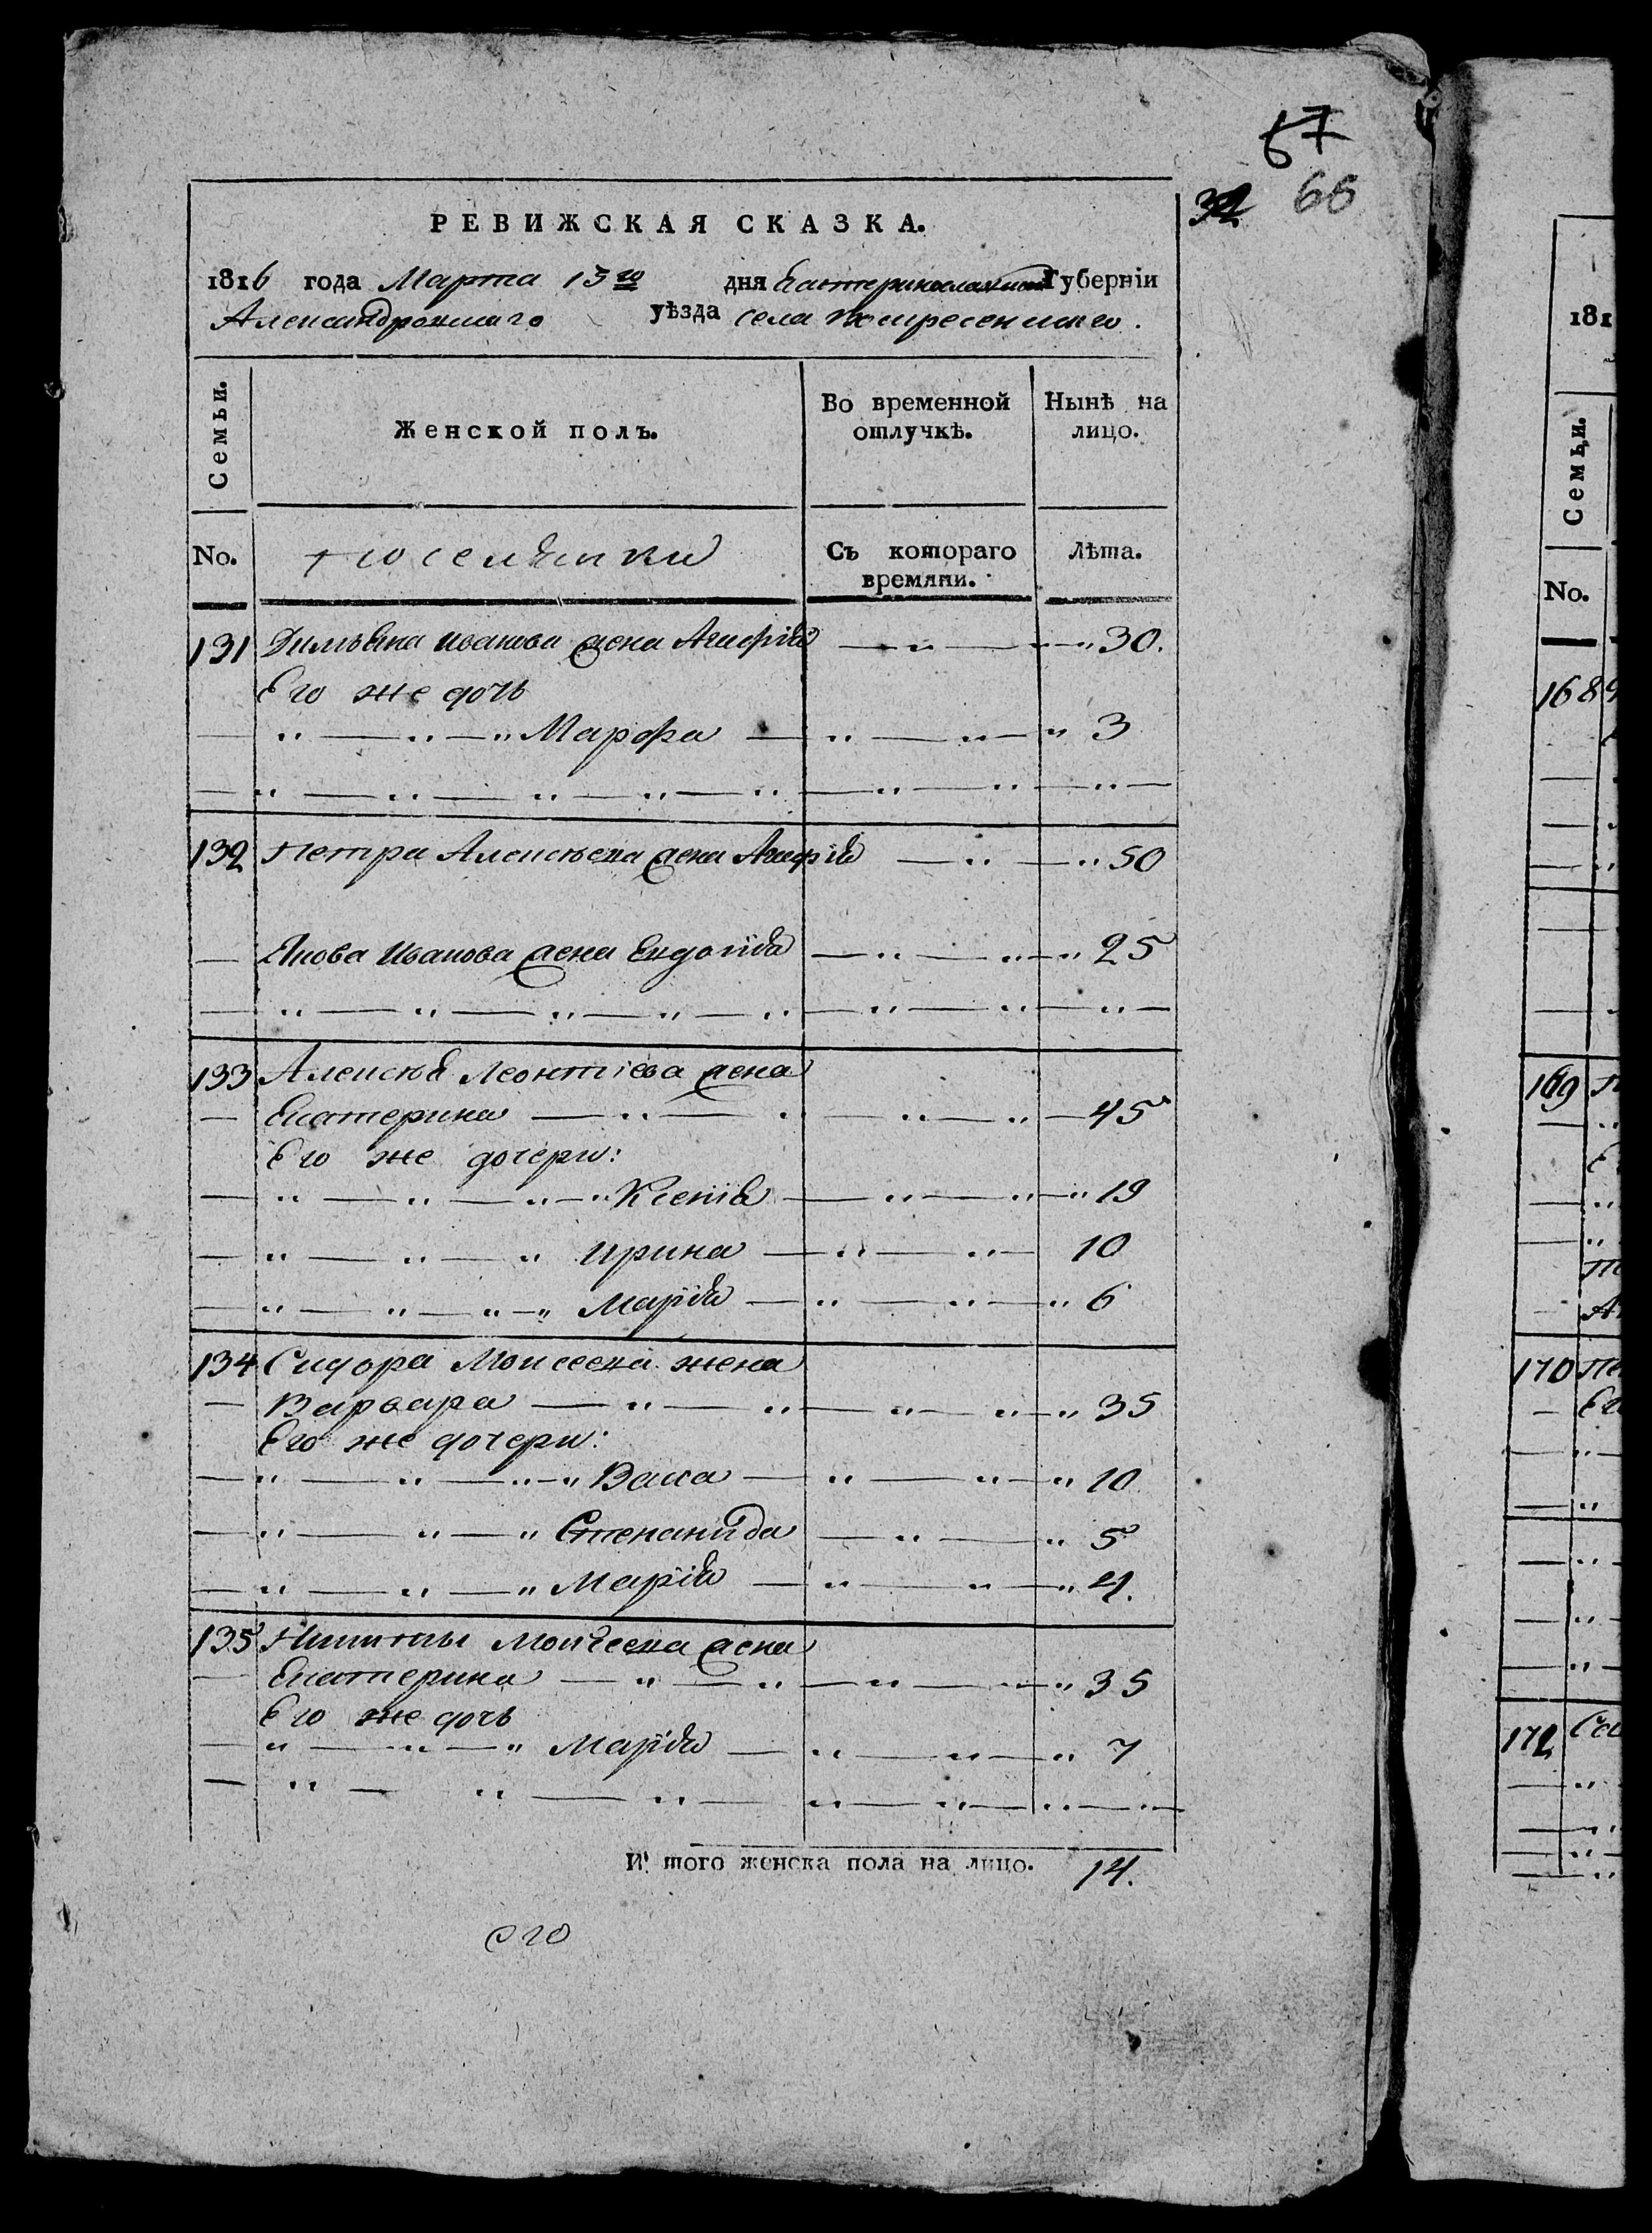 67
32 66
РЕВИЖСКАЯ СКАЗКА.
1816 года Марта 15го дня Екатеринославской Губернiи
Александровскаго уѣзда села Воскресенскаго.
Семьи.
Женской полъ.
Во временной отлучкѣ.
Нынѣ на лицо.
No.
поселянки
Съ котораго времяни.
Лѣта.
131 Димьяна Иванова жена Агафiя — " — " 30.
Его же дочь
— " — " — " Марфа — " — " — " 3
— " — " — " — " — " — " — " — " —
132 Петра Алексѣева жена Агафiя — " — " 50
— Якова Иванова жена Евдокiя — " — " — " 25
— " — " — " — " — " — " — " — " —
133 Алексѣя Леонтiева жена
— Екатерина — " — " — " — " — 45
Его же дочери:
— " — " — " — " Ксенiя — " — " — " 19
— " — " — " Ирина — " — " — 10
— " — " — " — " Марiя — " — " — " 6
134 Сидора Моисеева жена
— Варвара — " — " — " — " — " 35
Его же дочери:
— " — " — " — " Васса — " — " — " 10
— " — " — " Степанида — " — " 5
— " — " — " Марiя — " — " — " 4.
135 Никиты Моисеева жена
— Екатерина — " — " — " — " — " 35
Его же дочь
— " — " — " Марiя — " — " — " 7
— " — " — " — " — " — " — " —
И того женска пола на лицо. 14.
его
181
Семьи.
No.
168
169
170
172